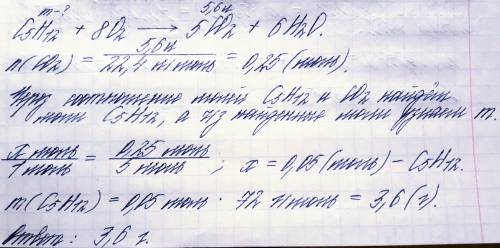 m-? 5,6л
C5H12 + 8O2 → 5CO2 + 6H2O.
n(CO2) = 5,6л / 22,4 л/моль = 0,25 (моль).
Через соотношение молей C5H12 и CO2 найдём
моли C5H12, а из найденные моли узнаем m.
x моль / 1 моль = 0,25 моль / 5 моль ; x = 0,05 (моль) – C5H12.
m(C5H12) = 0,05 моль · 72 г/моль = 3,6 (г).
Ответ: 3,6 г.